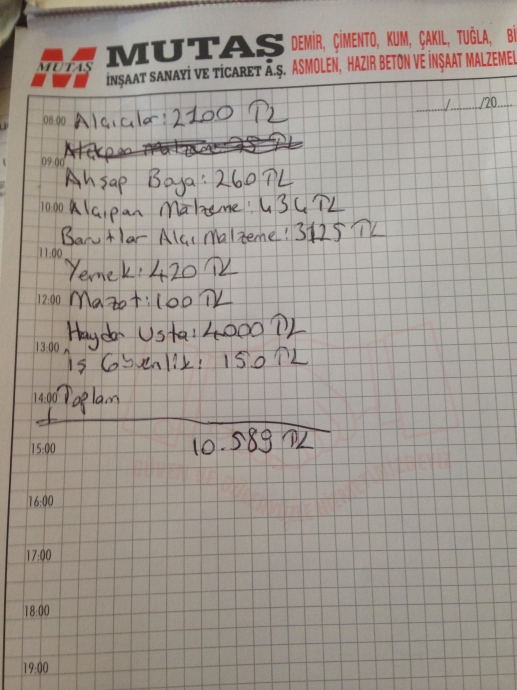 MUTAŞ
MUTAŞ
İNŞAAT SANAYİ VE TİCARET A.Ş.
DEMİR, ÇİMENTO, KUM, ÇAKIL, TUĞLA, Bİ
ASMOLEN, HAZIR BETON VE İNŞAAT MALZEMEL
........./........./20.....
08:00 Alçıcılar: 2100 TL
09:00
Ahşap Boya: 260 TL
10:00 Alçıpan Malzeme: 434 TL
Barutlar Alçı Malzeme: 3125 TL
11:00
Yemek: 420 TL
12:00 Mazot: 100 TL
Haydar Usta: 4000 TL
13:00
İş Güvenlik: 150 TL
14:00 Toplam
+
15:00 10.589 TL
16:00
17:00
18:00
19:00